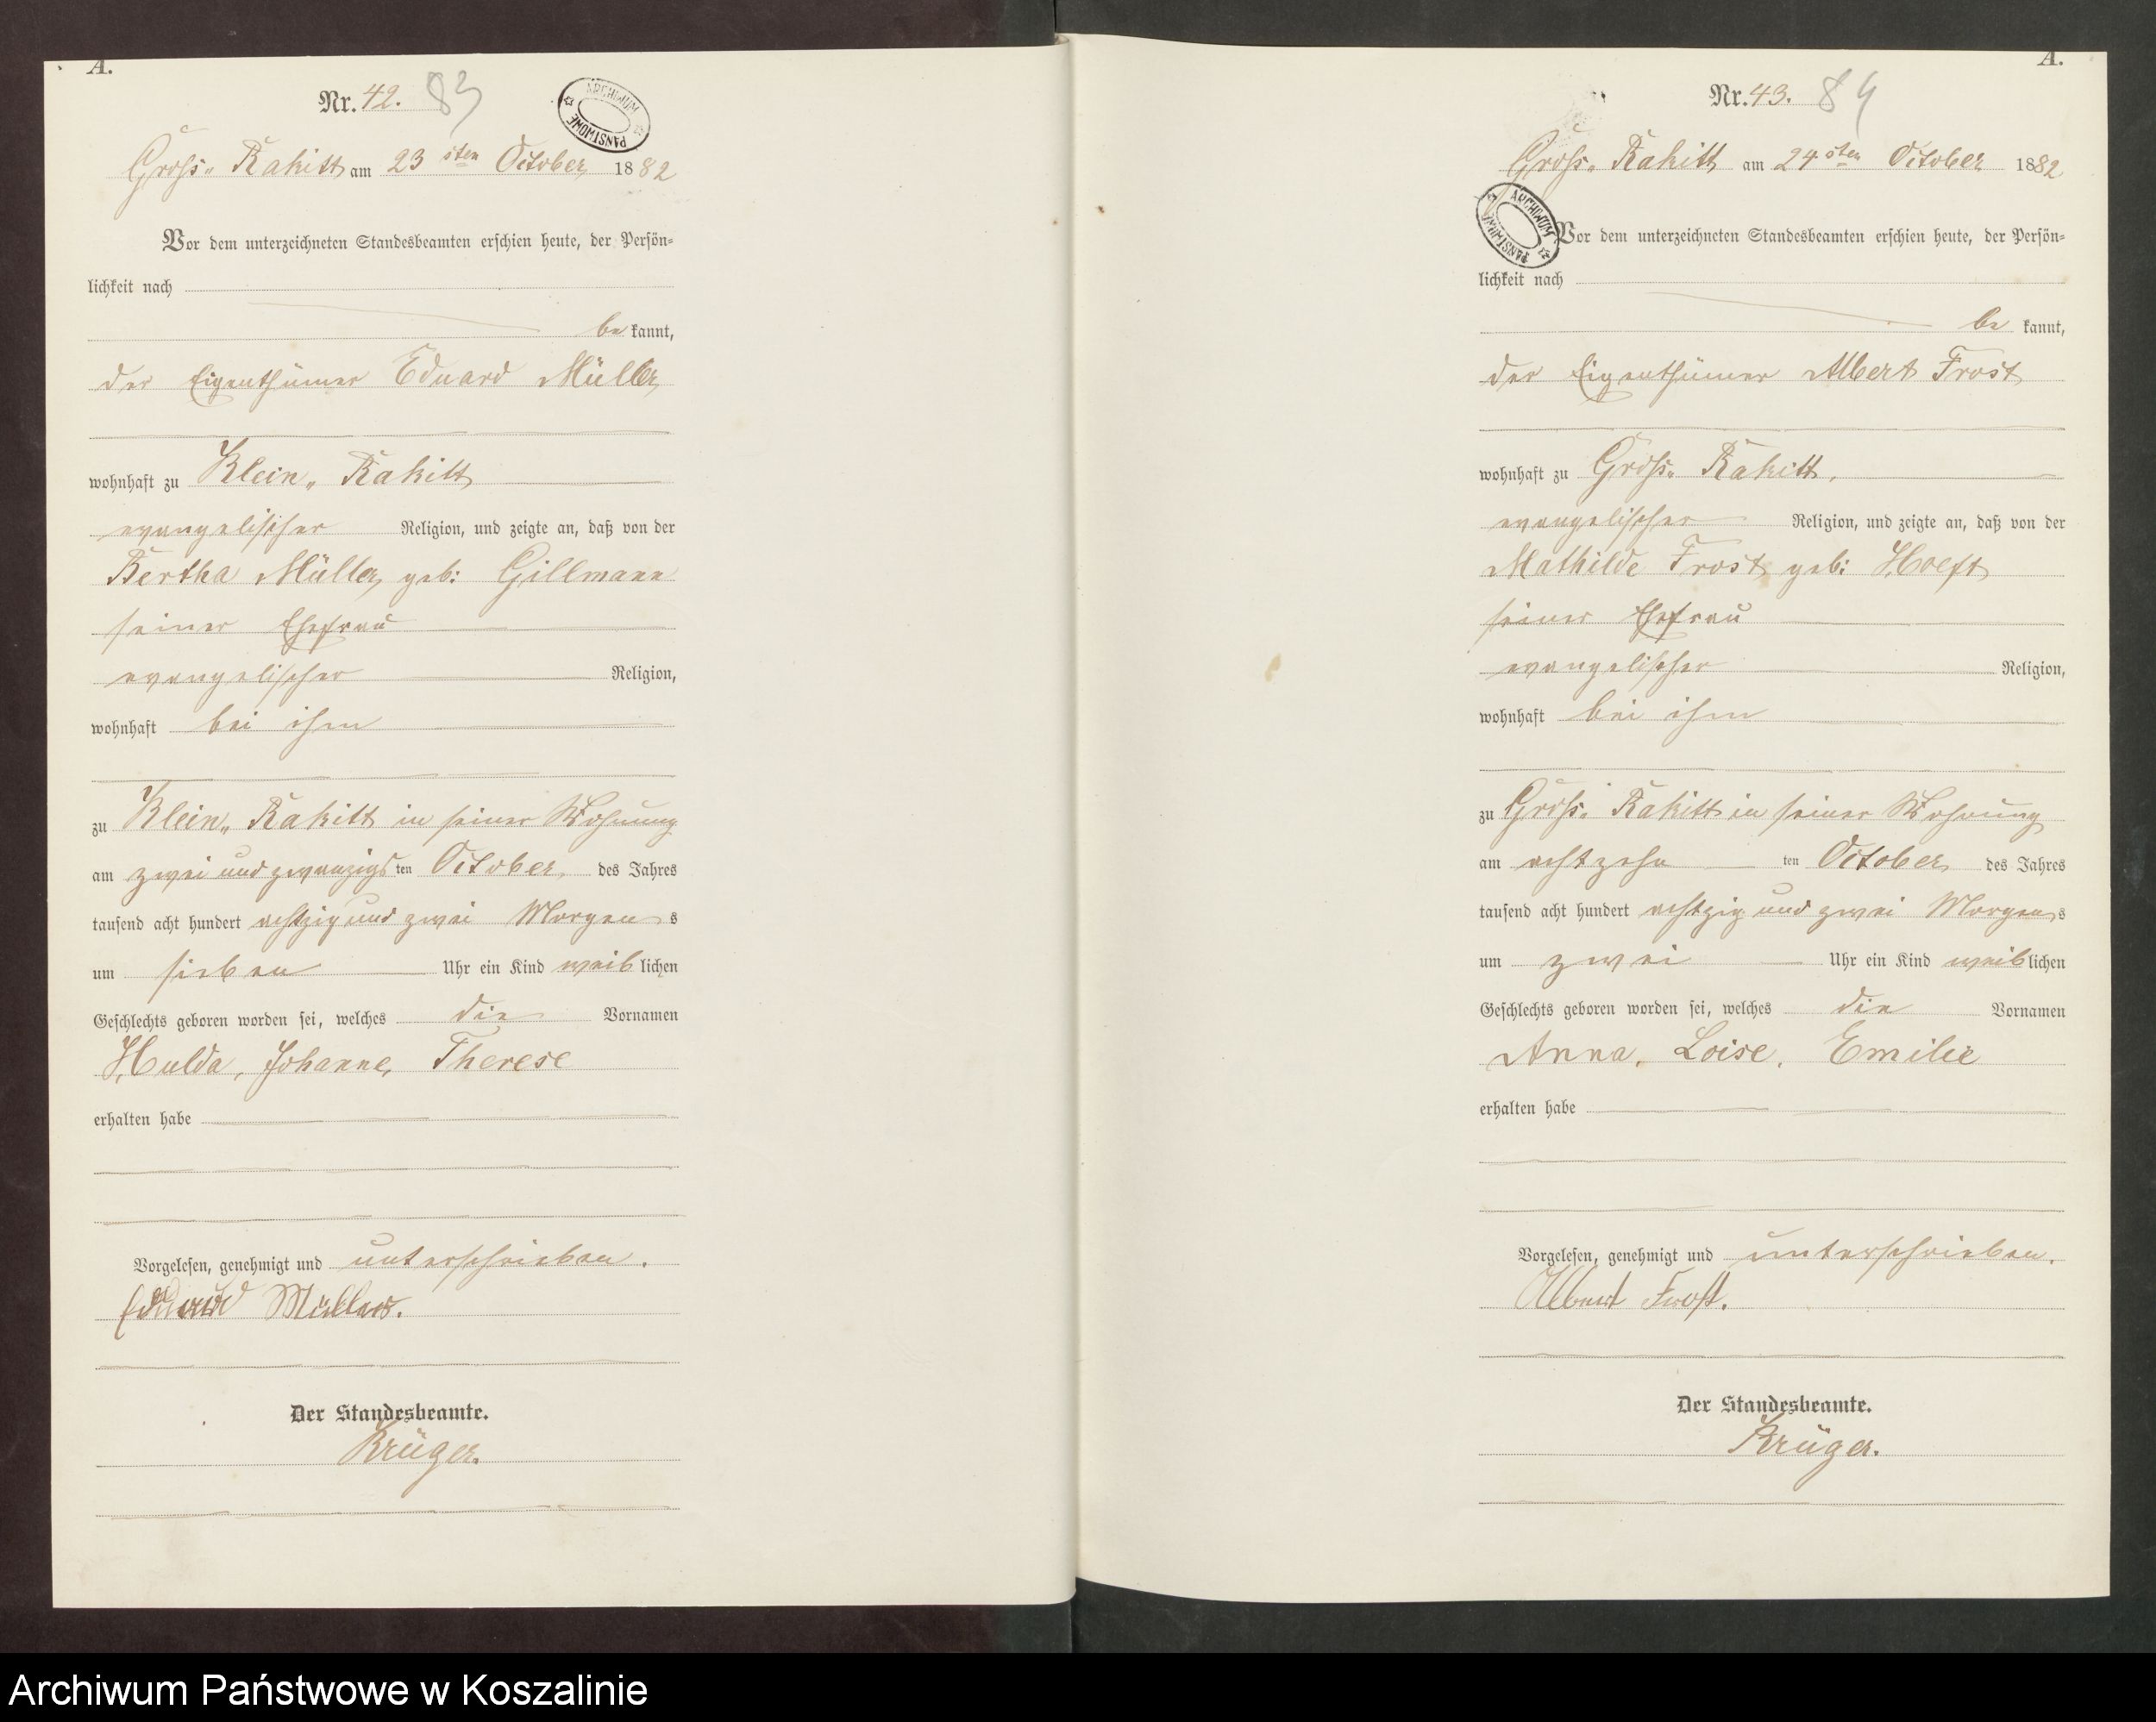 A.
Nr. 42. 83
ARCHIWUM PAŃSTWOWE
Gross„ Rakitt am 23 sten October 1882
Vor dem unterzeichneten Standesbeamten erschien heute, der Persön-
lichkeit nach
be kannt,
der Eigenthümer Eduard Müller
wohnhaft zu Klein„ Rakitt
evangelischer Religion, und zeigte an, daß von der
Bertha Müller geb: Gillmann
seiner Ehefrau
evangelischer Religion,
wohnhaft bei ihm
zu Klein„ Rakitt in seiner Wohnung
am zwei und zwanzigsten October des Jahres
tausend acht hundert achtzig und zwei Morgens
um sieben Uhr ein Kind weiblichen
Geschlechts geboren worden sei, welches die Vornamen
Hulda, Johanne, Therese
erhalten habe
Vorgelesen, genehmigt und unterschrieben.
Eduard Müller.
Der Standesbeamte.
Krüger.
A.
Nr. 43. 84
Gross„ Rakitt am 24 sten October 1882
ARCHIWUM PAŃSTWOWE
Vor dem unterzeichneten Standesbeamten erschien heute, der Persön-
lichkeit nach
be kannt,
der Eigenthümer Albert Frost
wohnhaft zu Gross„ Rakitt,
evangelischer Religion, und zeigte an, daß von der
Mathilde Frost geb: Hoeft
seiner Ehefrau
evangelischer Religion,
wohnhaft bei ihm
zu Gross„ Rakitt in seiner Wohnung
am achtzehn ten October des Jahres
tausend acht hundert achtzig und zwei Morgens
um zwei Uhr ein Kind weiblichen
Geschlechts geboren worden sei, welches die Vornamen
Anna, Loise, Emilie
erhalten habe
Vorgelesen, genehmigt und unterschrieben.
Albert Frost.
Der Standesbeamte.
Krüger.
Archiwum Państwowe w Koszalinie